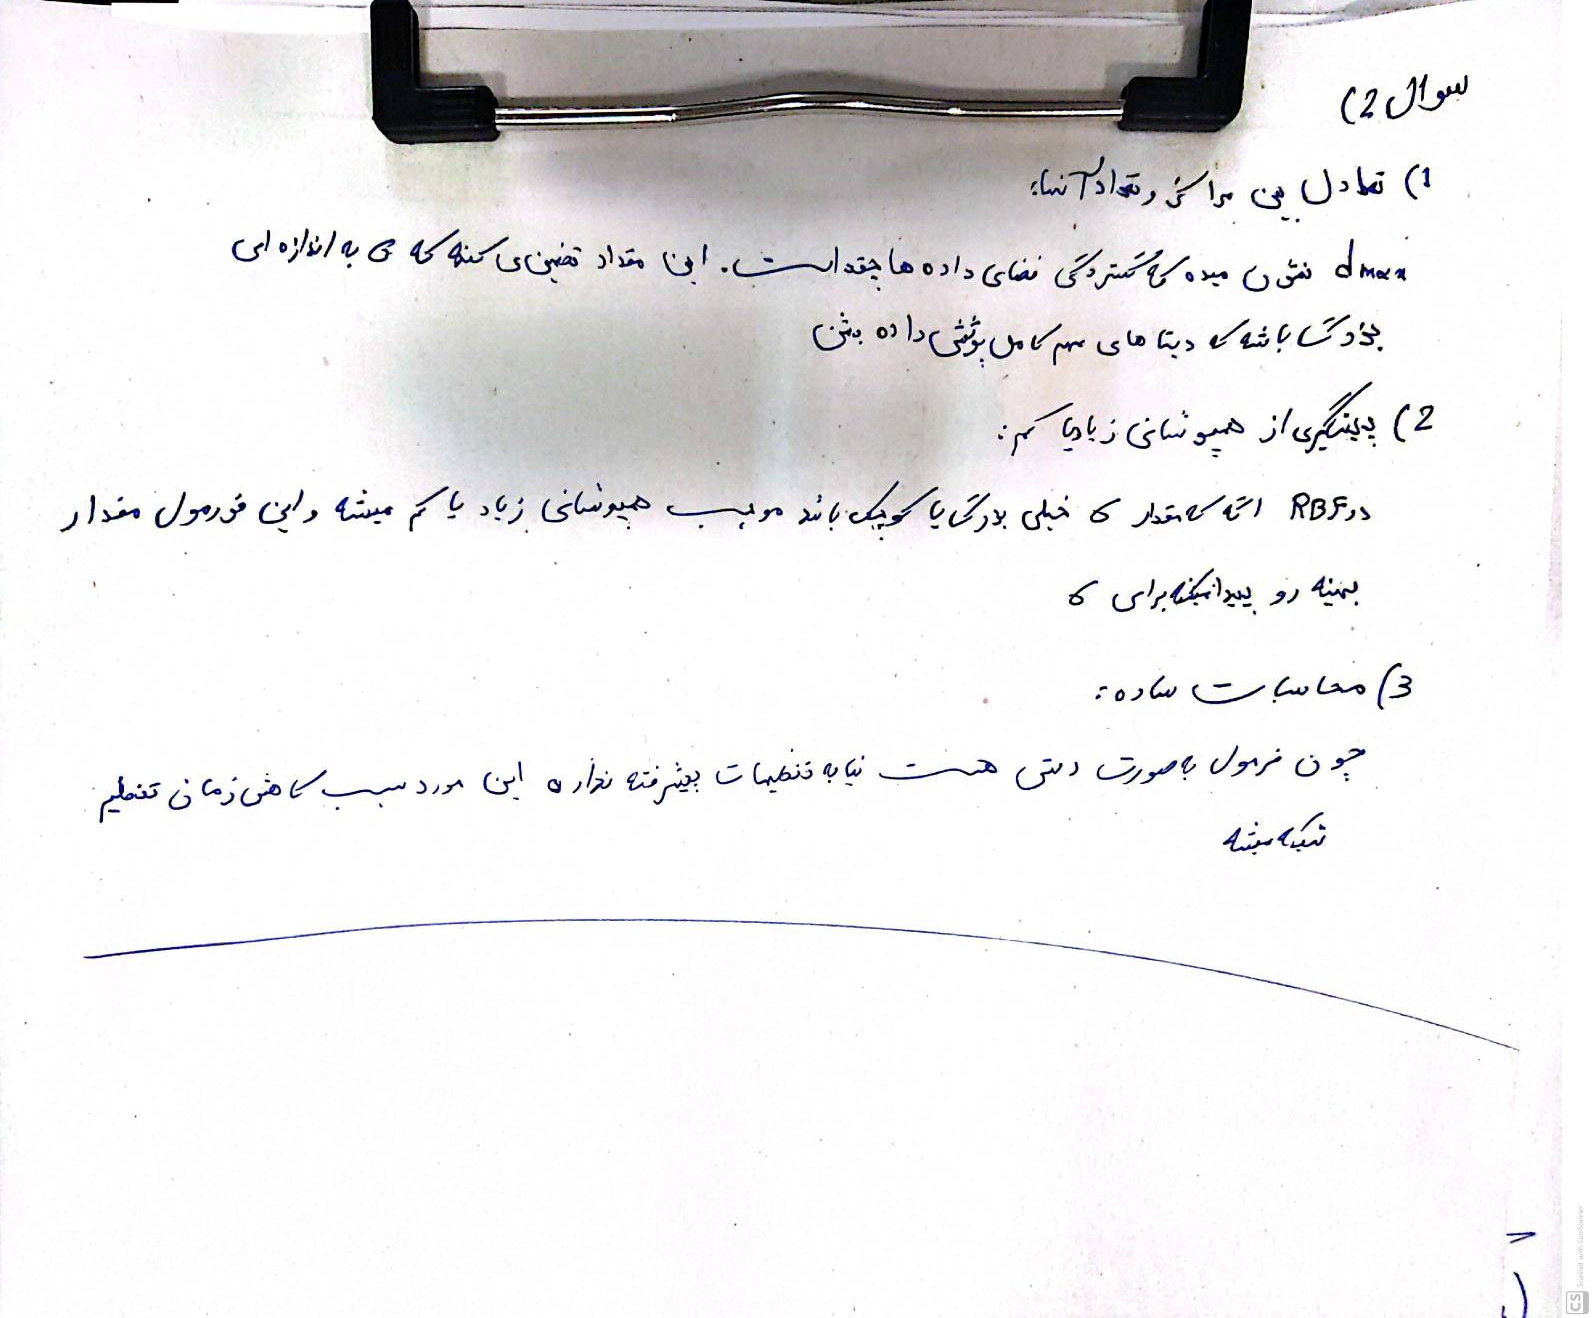 سوال 2)
1) تعادل بین مراکز و تعداد آنها:
dmax نشون میده که گستردگی فضای داده ها چقدر است. این مقداد تضمین می کنه که σ به اندازه ای
بزرگ باشه که دیتا های مهم کامل پوشش داده بشن
2) پیشگیری از همپوشانی زیاد یا کم:
در RBF اگه که مقدار σ خیلی بزرگ یا کوچک باشد موجب همپوشانی زیاد یا کم میشه و این فورمول مقدار
بهینه رو پیدا میکنه برای σ
3) محاسبات ساده:
چون فرمول به صورت دستی هست نیا به تنظیمات پیشرفته نداره این مورد سبب کاهش زمانی تنظیم
شبکه میشه
CS Scanned with CamScanner